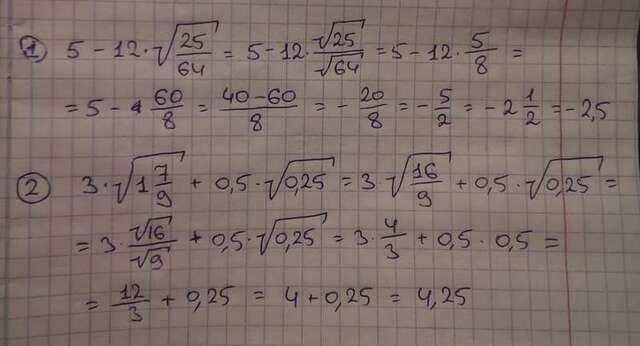 ① 5 - 12 · √(25/64) = 5 - 12 · √25/√64 = 5 - 12 · 5/8 =
= 5 - 60/8 = (40-60)/8 = -20/8 = -5/2 = -2 1/2 = -2,5
② 3 · √(1 7/9) + 0,5 · √(0,25) = 3 · √(16/9) + 0,5 · √(0,25) =
= 3 · √16/√9 + 0,5 · √(0,25) = 3 · 4/3 + 0,5 · 0,5 =
= 12/3 + 0,25 = 4 + 0,25 = 4,25